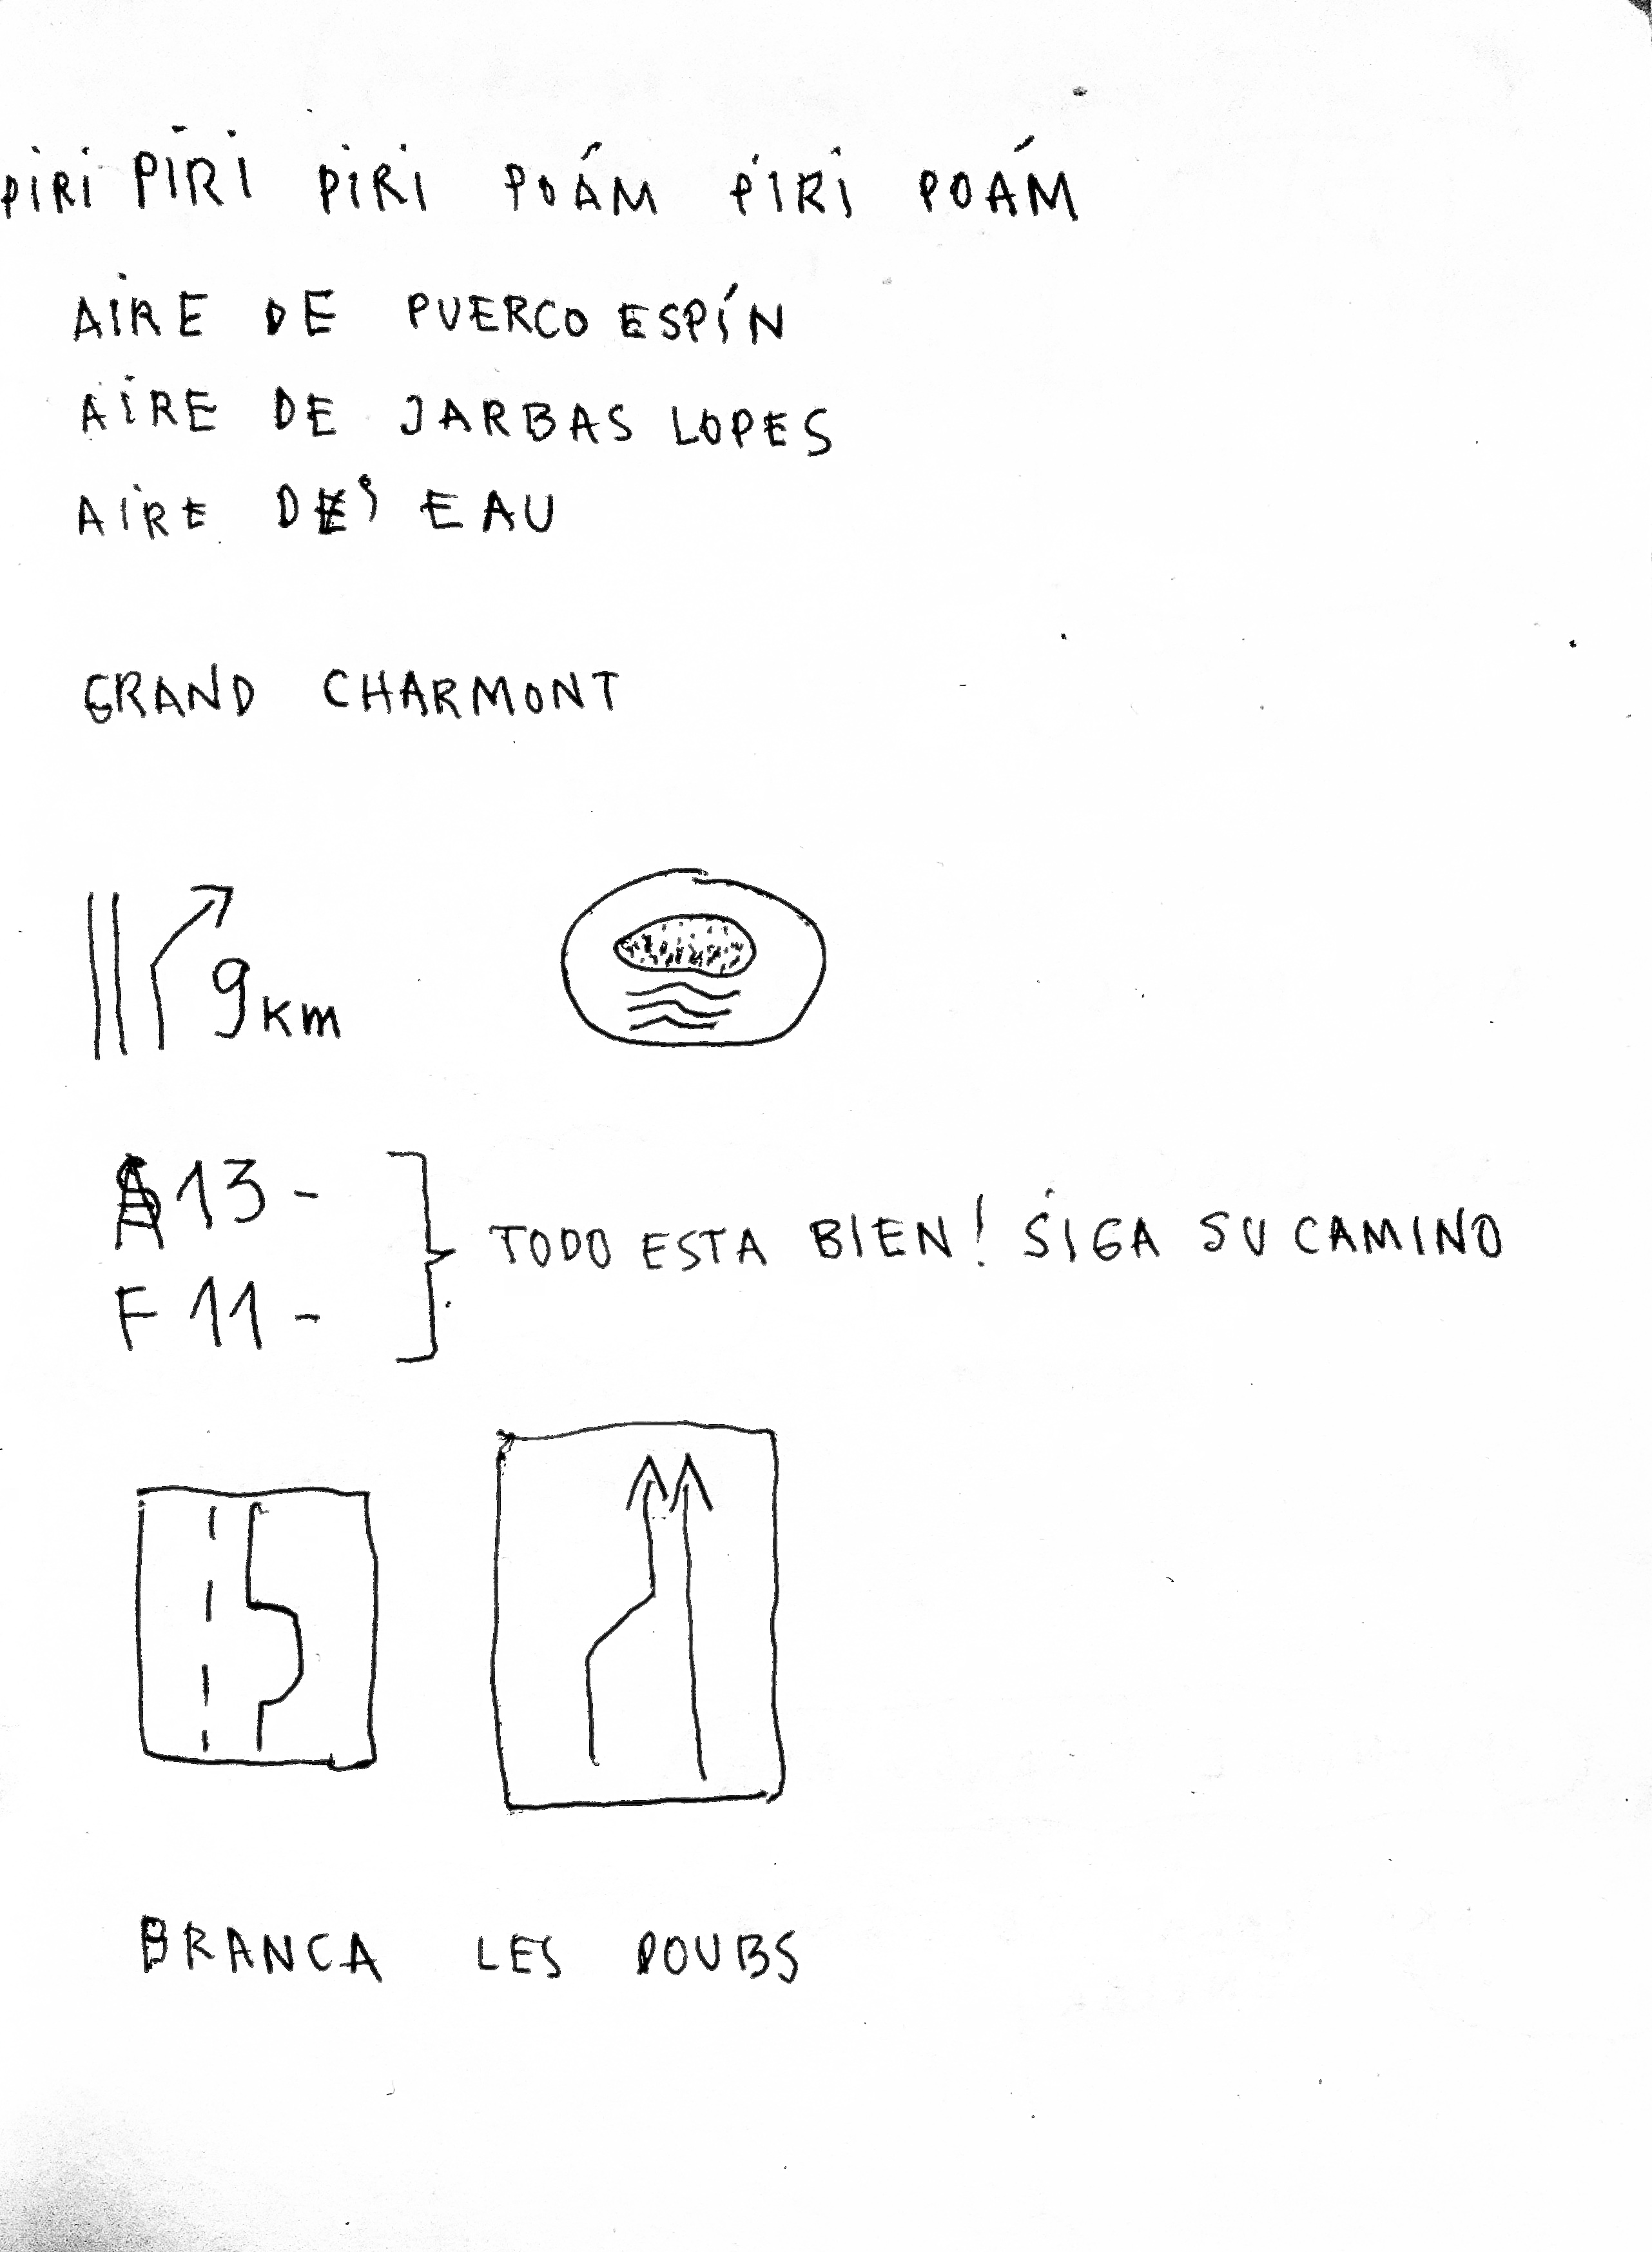 PIRI PIRI PIRI POÁM PIRI POÁM
AIRE DE PUERCO ESPÍN
AIRE DE JARBAS LOPES
AIRE D' EAU
GRAND CHARMONT
9 KM
A 13 -
F 11 -
TODO ESTA BIEN! SIGA SU CAMINO
BRANCA LES DOUBS